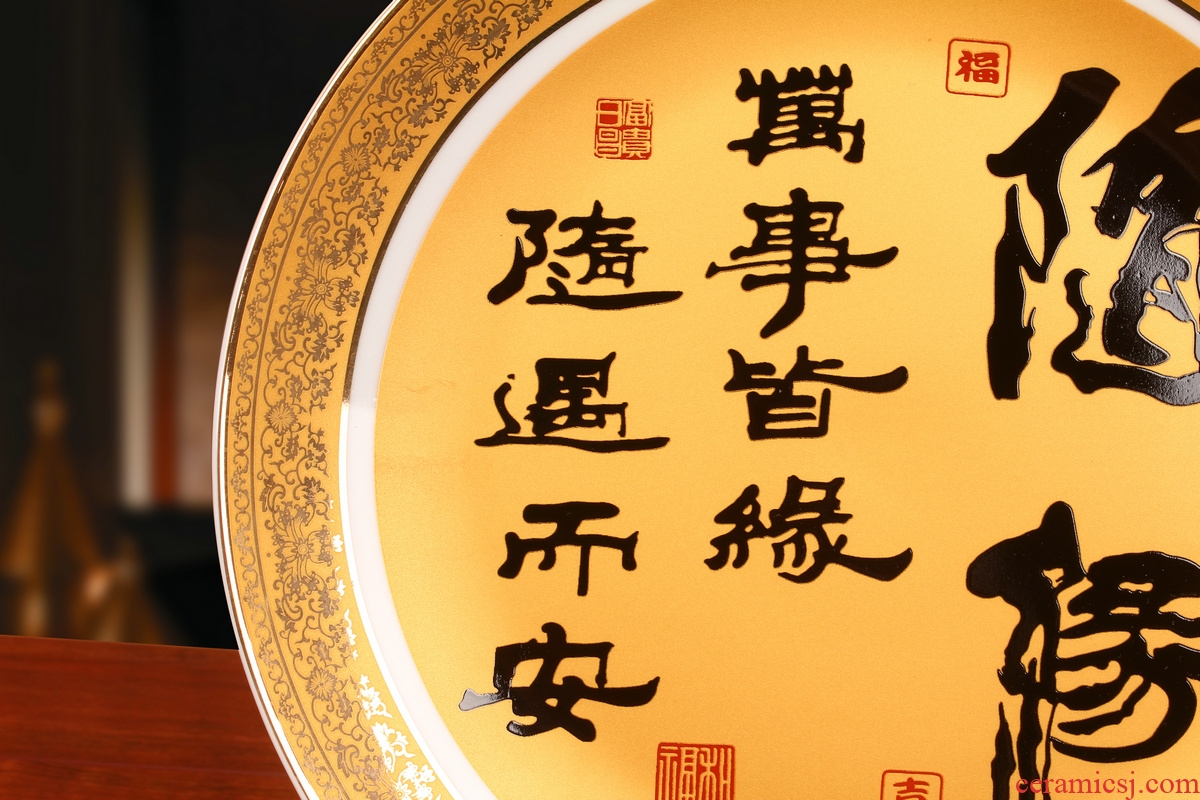 隨緣
福
萬事皆緣
隨遇而安
富貴
吉
ceramicsj.com